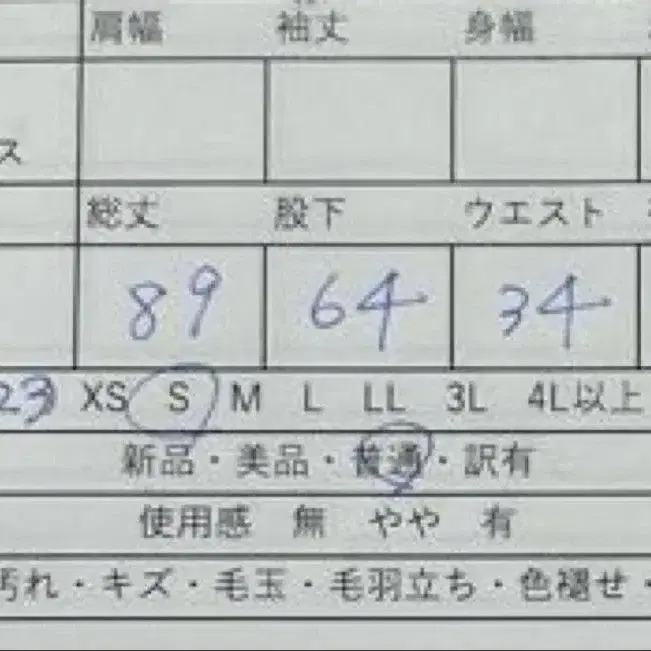 肩幅 袖丈 身幅
ス
総丈 股下 ウエスト
89 64 34
23 XS S M L LL 3L 4L以上
新品・美品・普通・訳有
使用感 無 やや 有
汚れ・キズ・毛玉・毛羽立ち・色褪せ・